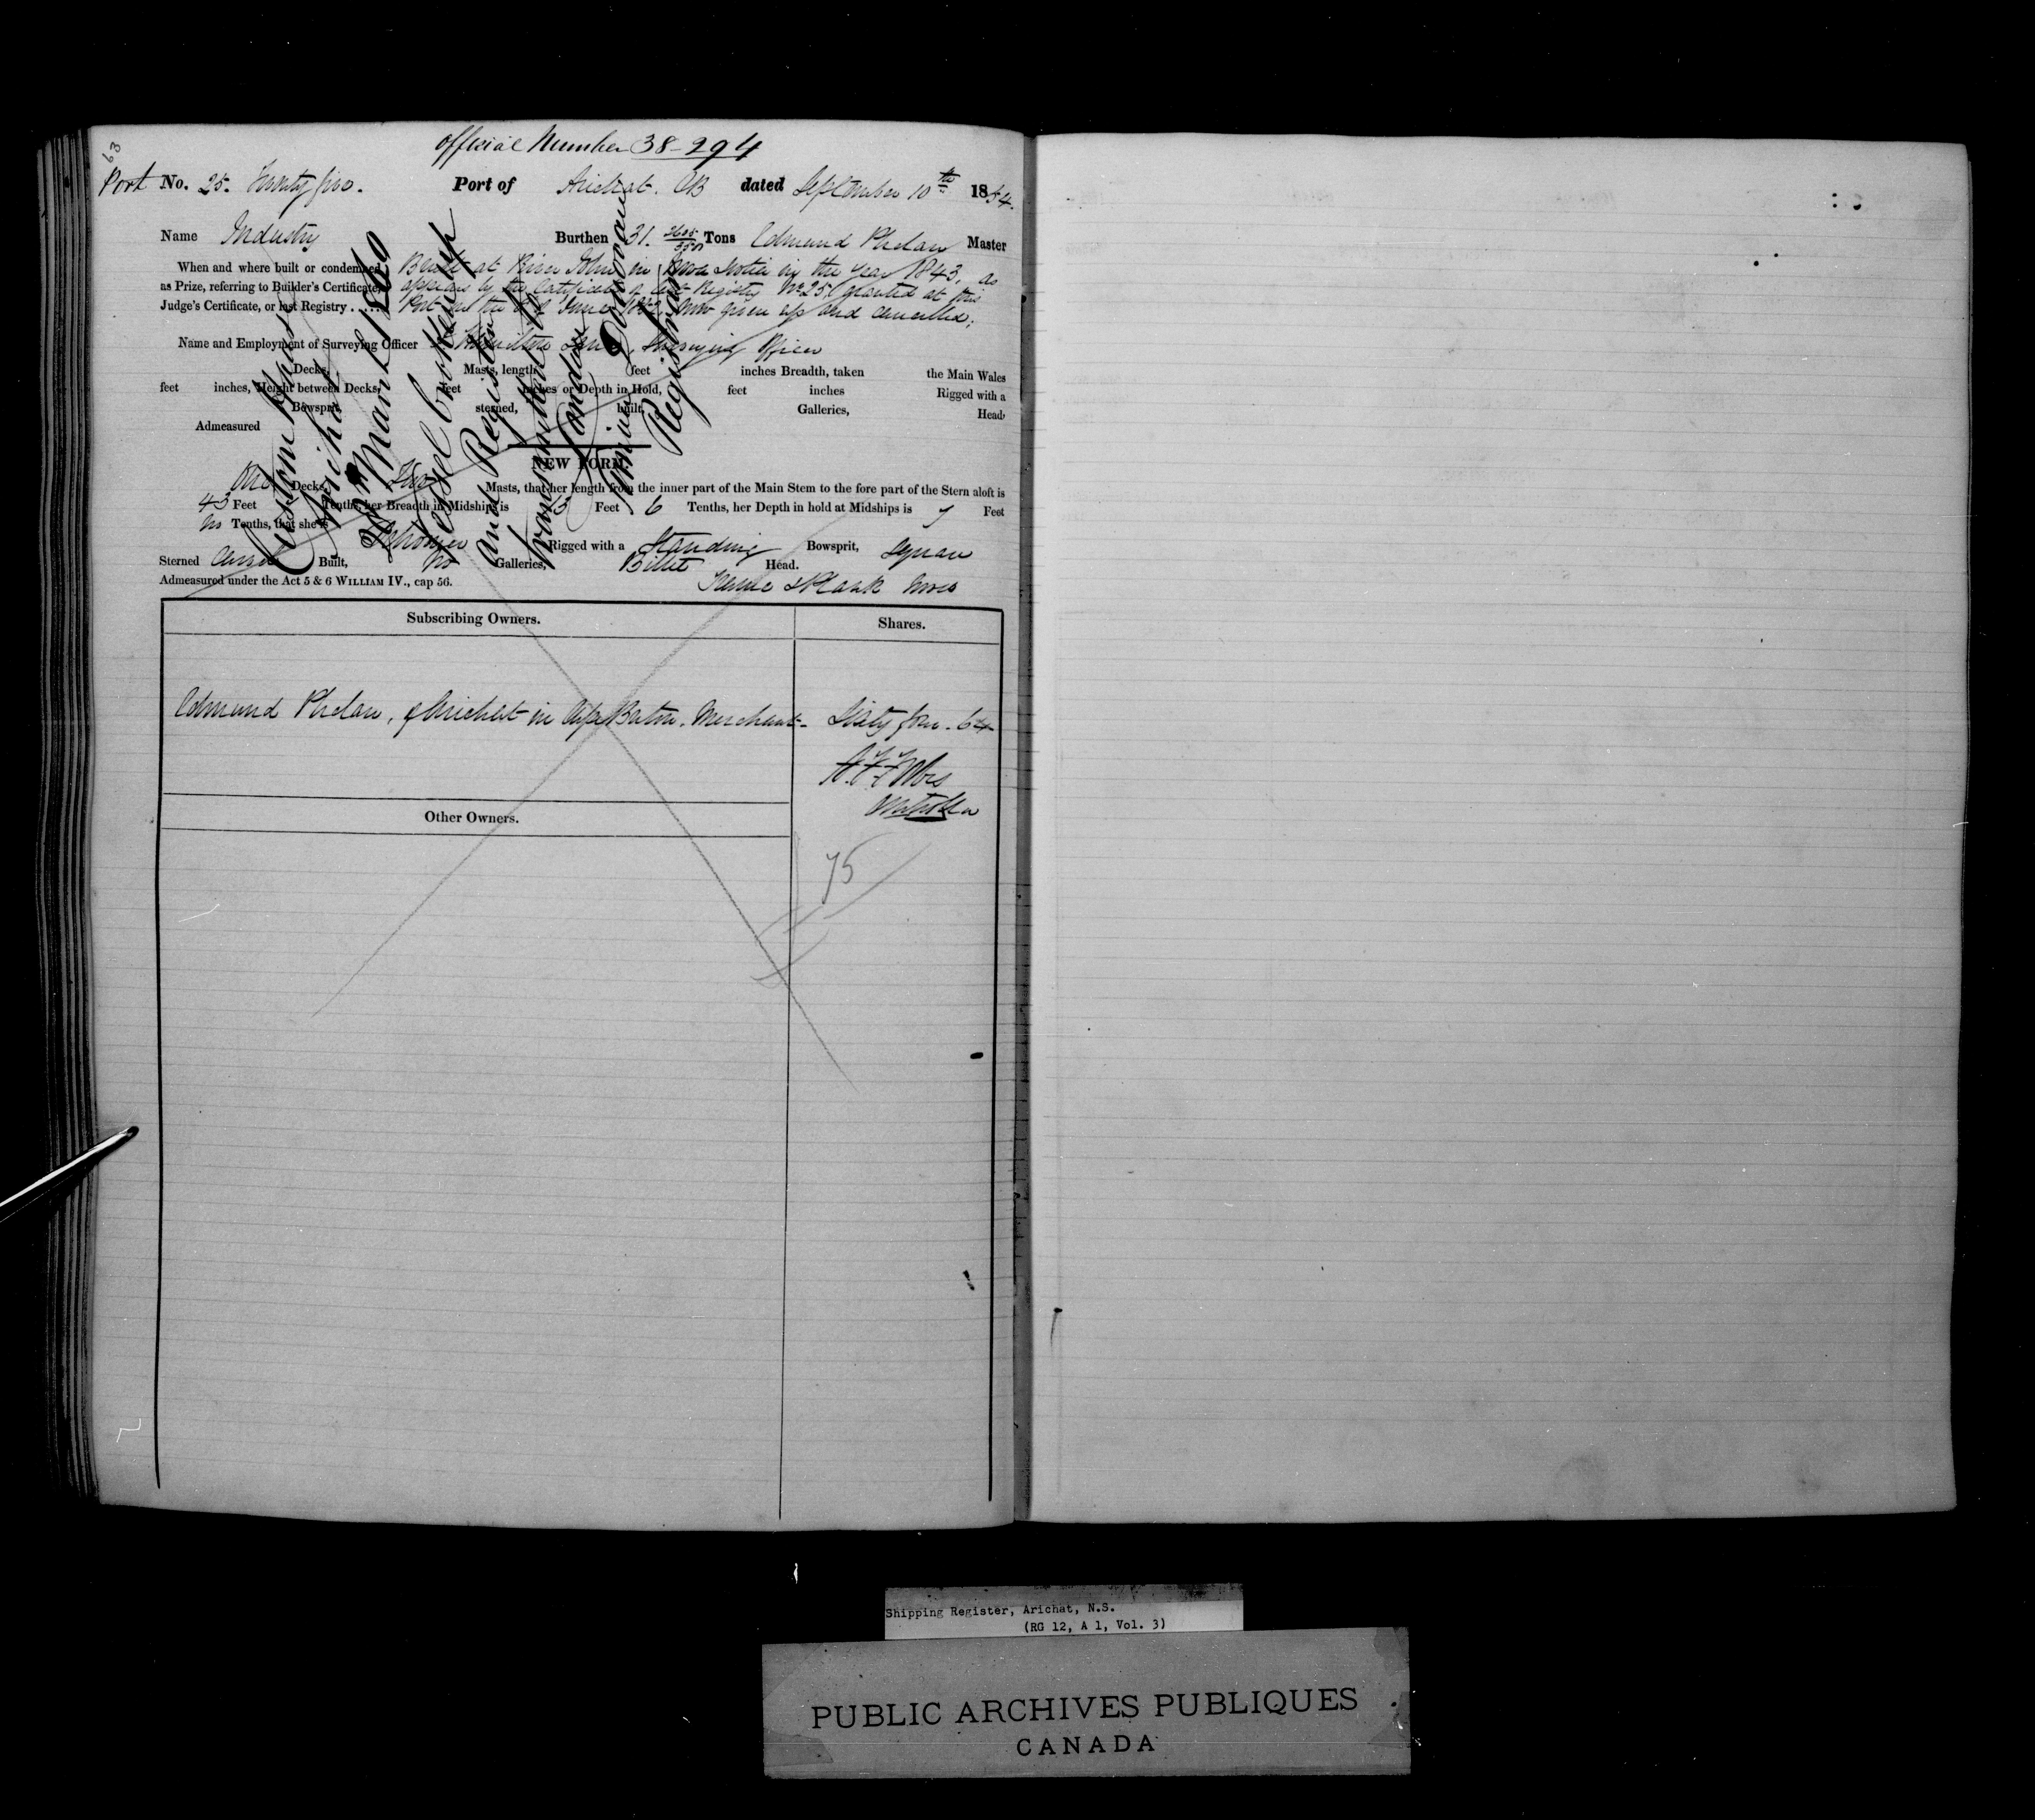 63
Official Number 38-294
Port No. 25. Twenty five. Port of Arichat. CB dated September 10th 1854.
Name Industry Burthen 31. 2605/3500 Tons Edmund Phelan Master
When and where built or condemned as Prize, referring to Builder's Certificate, Judge's Certificate, or last Registry....
Built at River John in Nova Scotia in the year 1843, as
appears by the Certificate of last Registry No. 25 granted at this
Port on the June now given up and cancelled;
Name and Employment of Surveying Officer Surveying Officer
Decks, Masts, length feet inches Breadth, taken the Main Wales
feet inches, Height between Decks, feet inches or Depth in Hold, feet inches Rigged with a
Bowsprit, sterned, built, Galleries, Head,
Admeasured
NEW FORM.
One Decks, Two Masts, that her length from the inner part of the Main Stem to the fore part of the Stern aloft is
43 Feet Tenths, her Breadth in Midships is 13 Feet 6 Tenths, her Depth in hold at Midships is 7 Feet
no Tenths, that she is Schooner Rigged with a Standing Bowsprit, Square
Sterned Carvel Built, no Galleries, Billet Head.
Admeasured under the Act 5 & 6 WILLIAM IV., cap 56. Frame & Plank Wood
Custom House
Arichat
Mant 1860
Vessel broken up
and Register
transmitted to
London
Donovan
Registrar
Subscribing Owners. Shares.
Edmund Phelan, of Arichat in Cape Breton. Merchant - Sixty four - 64
Other Owners.
75
Shipping Register, Arichat, N.S.
(RG 12, A 1, Vol. 3)
PUBLIC ARCHIVES PUBLIQUES
CANADA